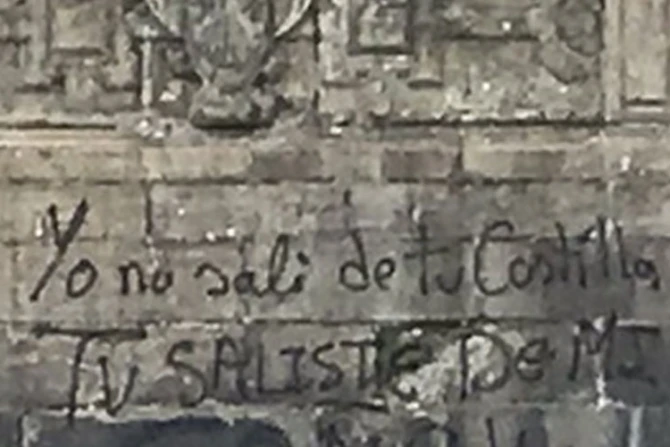 Yo no sali de tu Costilla
TU SALISTE DE MI